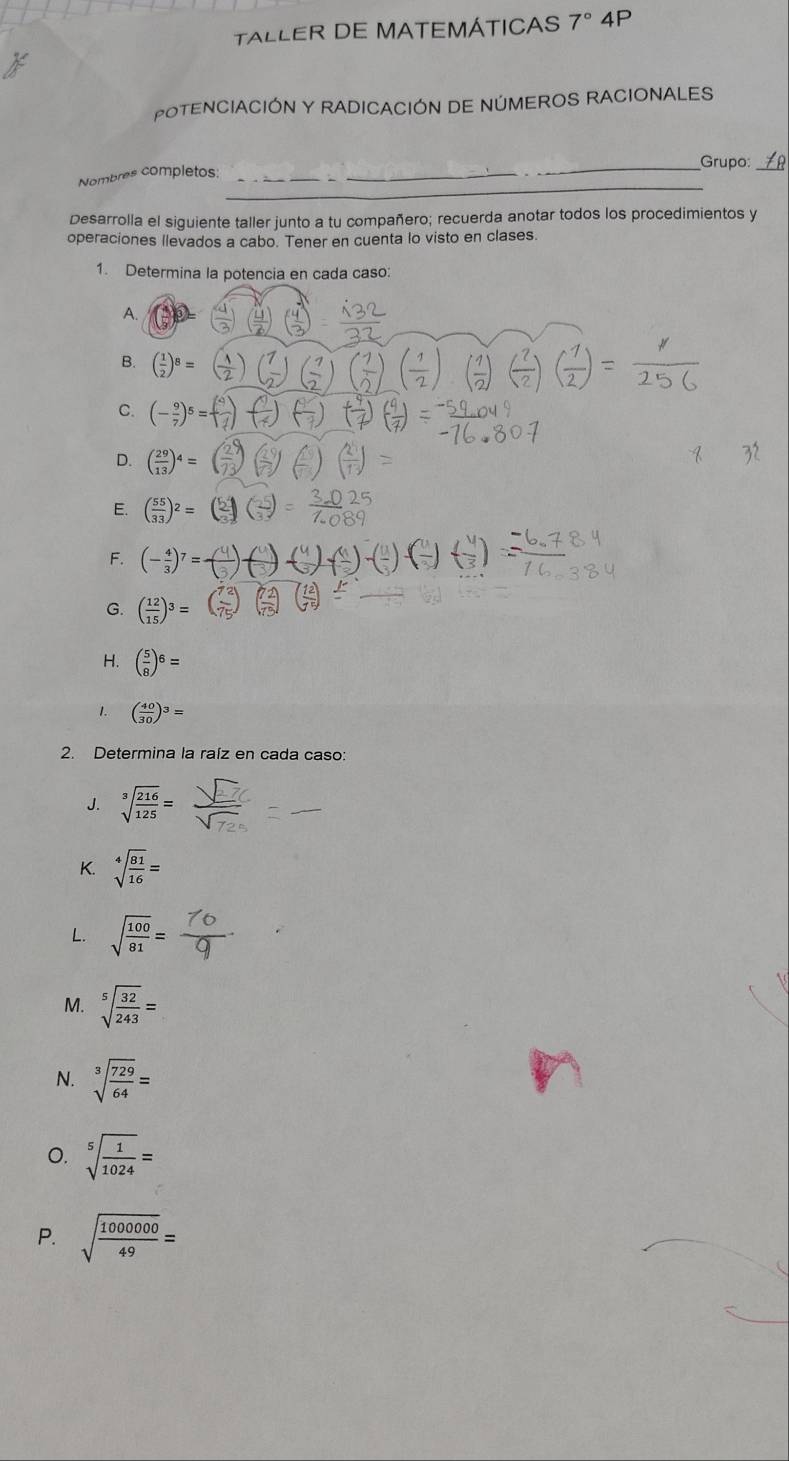 TALLER DE MATEMÁTICAS 7° 4P
POTENCIACIÓN Y RADICACIÓN DE NÚMEROS RACIONALES
Nombres completos: Grupo:
Desarrolla el siguiente taller junto a tu compañero; recuerda anotar todos los procedimientos y
operaciones llevados a cabo. Tener en cuenta lo visto en clases.
1. Determina la potencia en cada caso:
A. = (4/3) (4/3) (4/3) =
B. (1/2)^8 = (1/2) (1/2) (1/2) (1/2) (1/2) (1/2) (1/2) (1/2) = /256
C. (-9/7)^5 = (-9/7) (-9/7) (-9/7) (-9/7) (-9/7) = -59.049/-16.807
D. (29/13)^4 = (29/13) (29/13) (29/13) (29/13) =
E. (55/33)^2 = (55/33) (55/33) = 3.025/1.089
F. (-4/3)^7 = -(4/3) -(4/3) -(4/3) -(4/3) -(4/3) -(4/3) -(4/3) = -6.784/16.384
G. (12/15)^3 = (12/15) (12/15) (12/15) =
H. (5/8)^6 =
I. (40/30)^3 =
2. Determina la raíz en cada caso:
J. ∛(216/125) = √216/√125 = —
K. ∜(81/16) =
L. √(100/81) = 10/9
M. ⁵√(32/243) =
N. ∛(729/64) =
O. ⁵√(1/1024) =
P. √(1000000/49) =